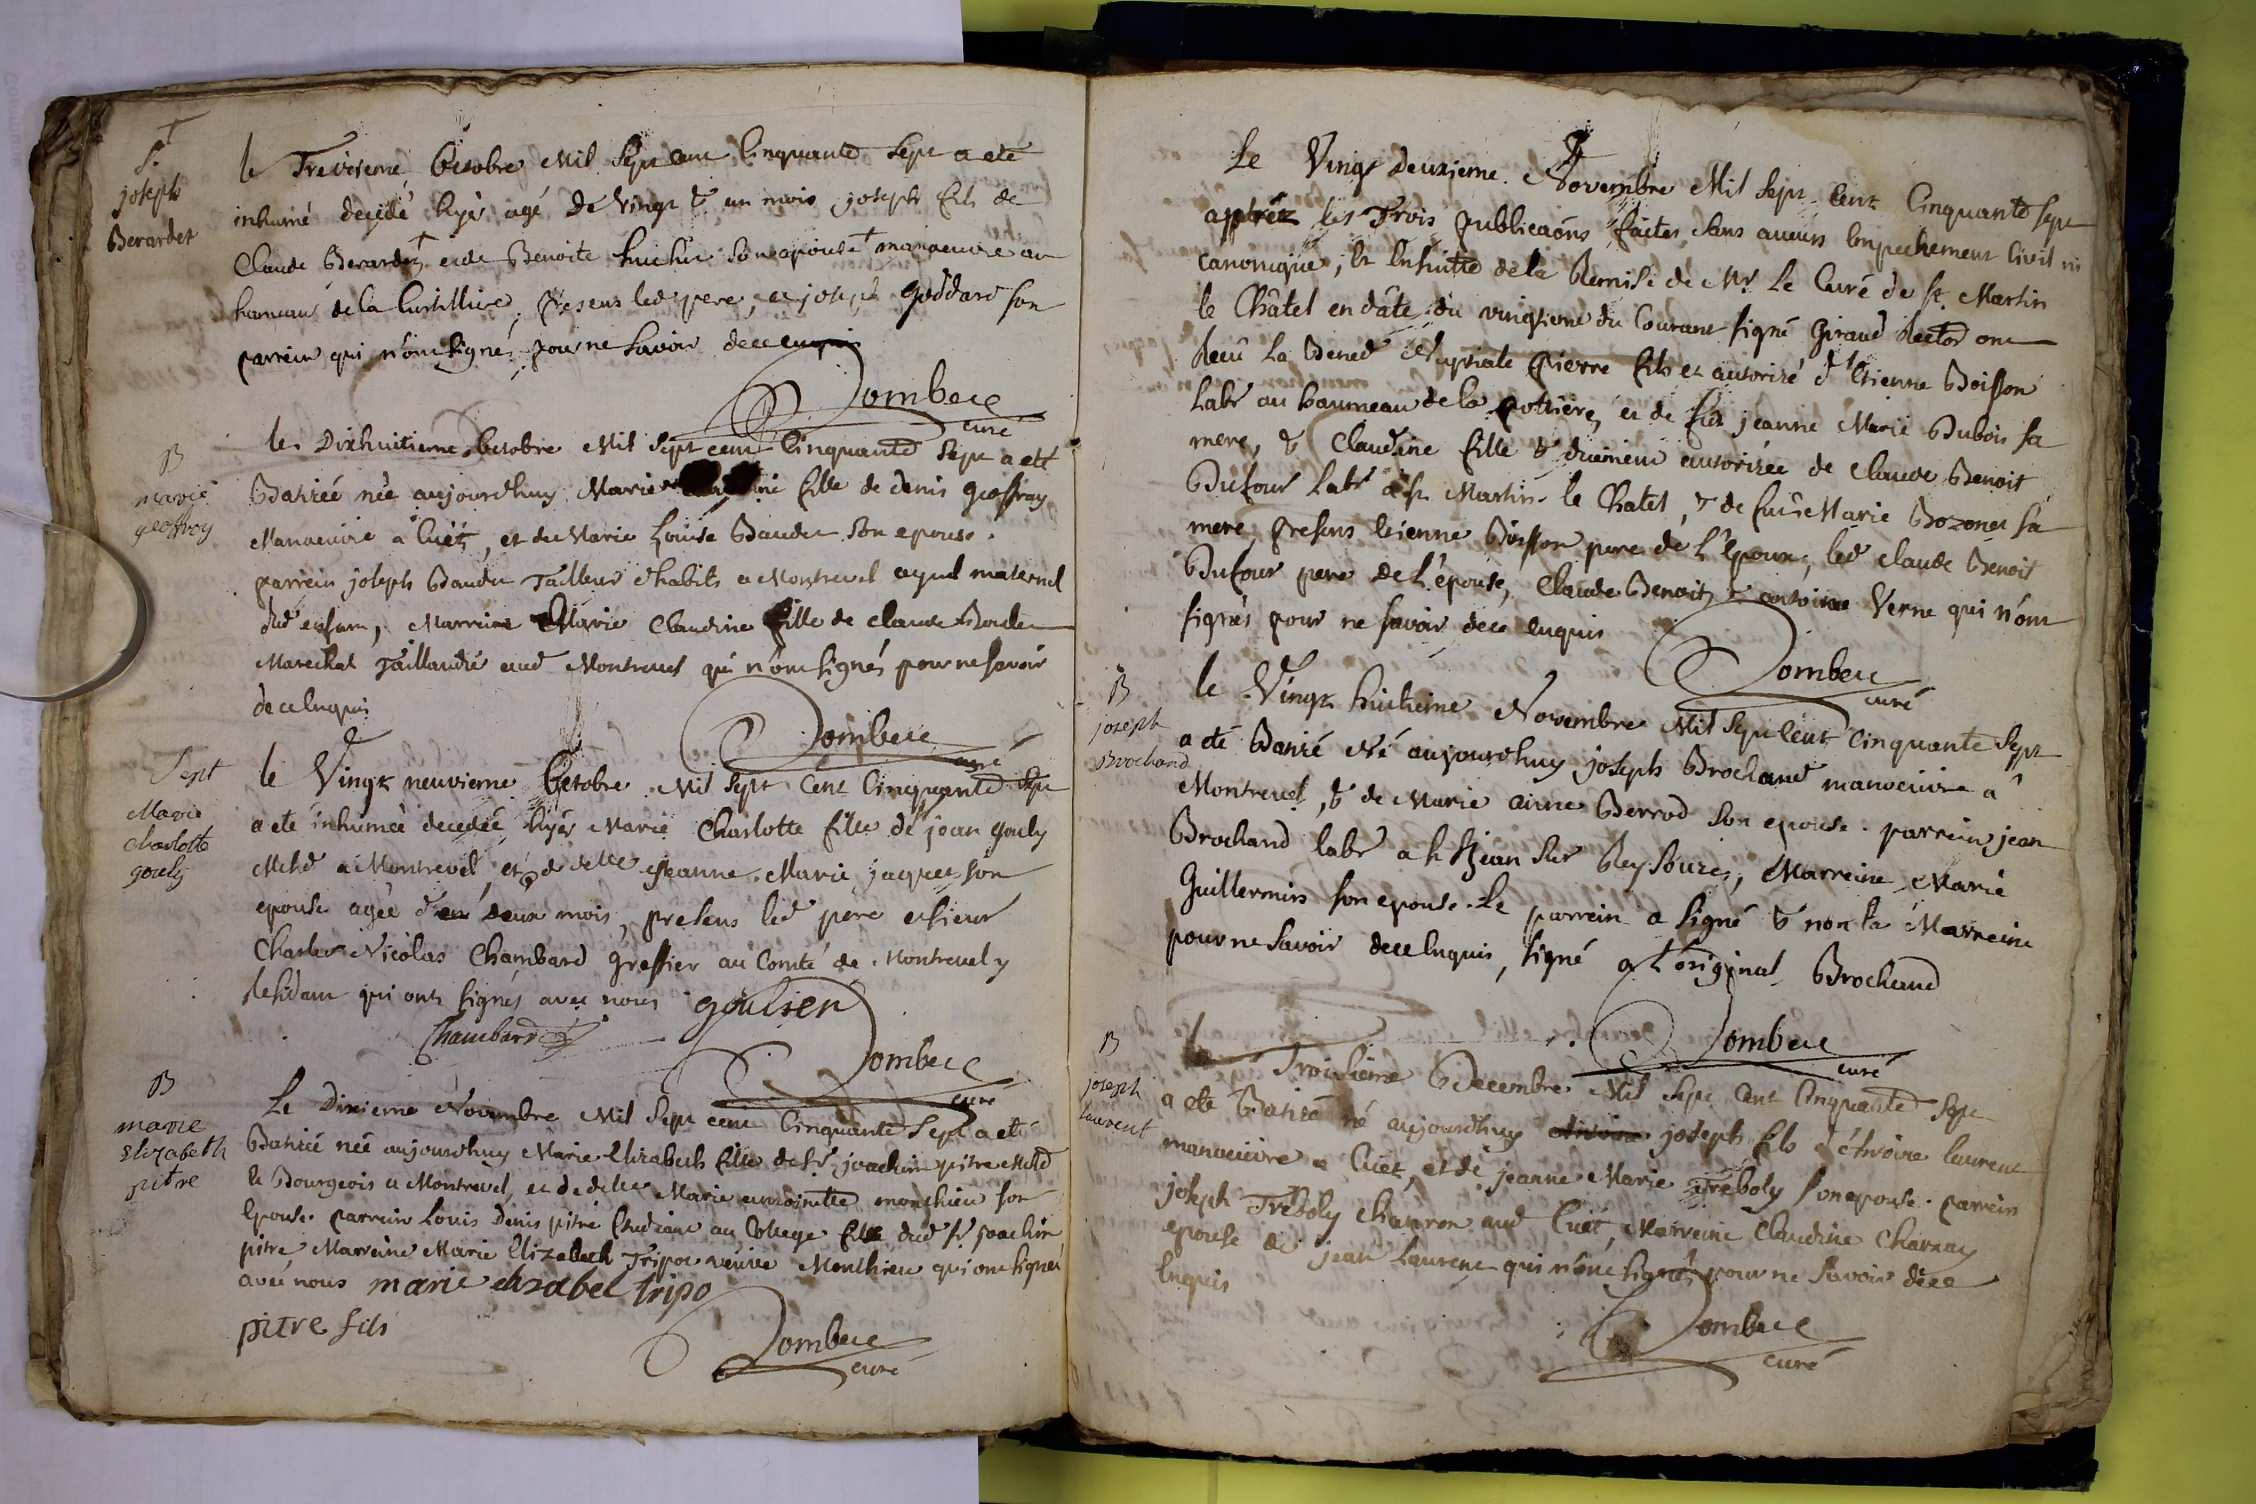 S.
joseph
Berardet
le Treisieme Octobre Mil Sept cent Cinquante Sept a eté
inhumé decedé hyer agé de vingt & un mois joseph fils de
Claude Berardet et de Benoite huchu son epouse manoeuvre au
hameau de la , presens led pere, et joseph goddard son
parrein qui n'ont signés pour ne savoir de ce enquis
Dombere
curé
B
marie
geoffroy
le Dixhuitieme Octobre Mil Sept cent Cinquante Sept a eté
Batisée née aujourdhuy Marie fille de denis geoffray
Manoeuvre a Cuet, et de Marie Louise Baudu son epouse.
parrein joseph Baudu Tailleur d'habits a Montrevel ayeul maternel
dud enfant, Marreine Marie Claudine fille de claude
Marechal Taillandié aud Montrevel qui n'ont signés pour ne savoir
de ce enquis
Dombere
curé
Sept
Marie
charlotte
gouly
le Vingt neuvieme Octobre Mil Sept Cent Cinquante Sept
a eté inhumée decedée hyer Marie Charlotte fille de jean gouly
Mchd a Montrevel, et de delle jeanne Marie jaquet son
epouse agée d'en deux mois, presens led pere et sieur
Charles Nicolas Chambard greffier au Comté de Montrevel y
Residant qui ont signés avec nous goulier
Chambard
Dombere
curé
B
marie
elizabeth
pitre
Le Dixieme Novembre Mil Sept cent Cinquante Sept a eté
Batisée née aujourdhuy Marie Elizabeth fille de Sr joachim pitre Mchd
& Bourgeois a Montrevel, et de delle Marie antoinette monthieu son
Epouse. parrein Louis Denis pitre Etudiant au College fils dud Sr joachim
pitre Marreine Marie Elizabeth Tripoz veuve Monthieu qui ont signés
avec nous marie elizabet tripo
pitre fils
Dombere
curé
Le Vingt deuxieme Novembre Mil Sept Cent Cinquante Sept
apprez les Trois publicaons faites sans aucun Empechement Civil ni
canonique, Et Ensuitte de la Remise de Mr Le Curé de St Martin
le Châtel en dâte du vingtieme du Courant signé Giraud Rector ont
Recu La Bened Nuptiale Pierre fils et autorisé d'Etienne Boisson
Labr au hammeau de la potière, et de fue jeanne Marie Dubois sa
mere, & Claudine fille & duement autorisée de Claude Benoit
Dufour Labr a St Martin le Chatel, & de fue Marie Bozonet sa
mere, presens Etienne Boisson pere de l'Epoux, led Claude Benoit
Dufour pere de l'épouse, Claude Benoit & antoine Verne qui n'ont
signés pour ne savoir de ce enquis
Dombere
curé
B
joseph
Brochand
le Vingt huitieme Novembre Mil Sept Cent Cinquante Sept
a eté Batisé Né aujourdhuy joseph Brochand manoeuvre a
Montrevel, & de Marie anne Berrod son epouse. parrein jean
Brochand labr a St jean sur Reysouze, Marreine Marie
Guillermin son epouse. Le parrein a signé & non la Marreine
pour ne savoir de ce enquis, signé a l'original Brochand
Dombere
curé
B
joseph
laurent
le Troisieme Decembre Mil Sept Cent Cinquante Sept
a eté Batisé né aujourdhuy joseph fils d'Antoine laurent
manoeuvre a Cuet, et de jeanne Marie Treboly son epouse. parrein
joseph Treboly charron aud Cuet, Marreine Claudine Charnay
epouse de jean Laurent qui n'ont signés pour ne savoir de ce
Enquis
Dombere
curé